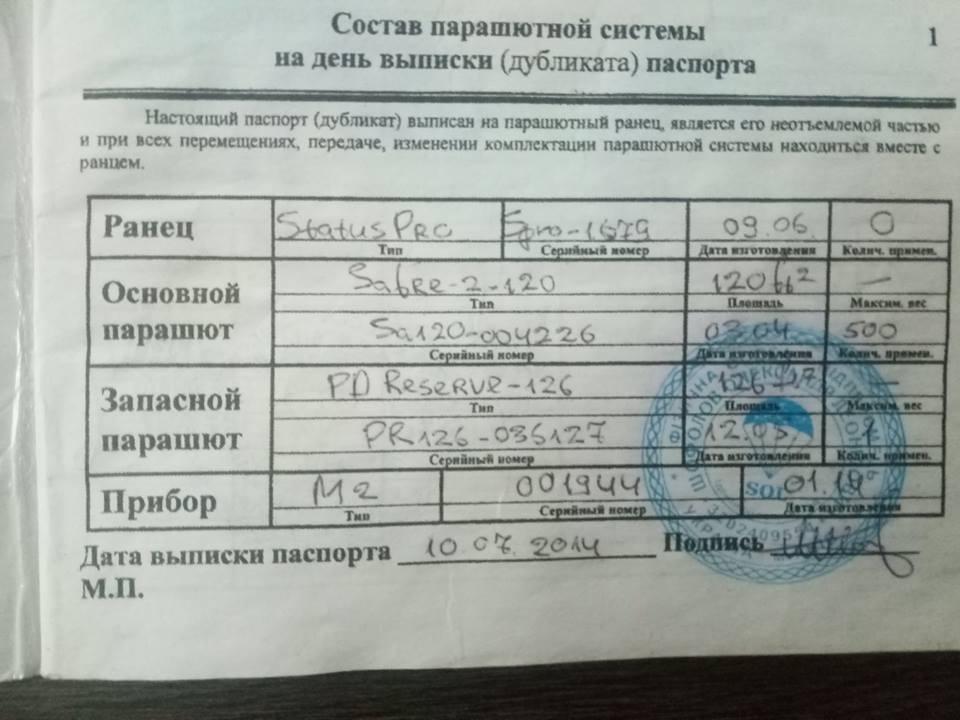 Состав парашютной системы
1
на день выписки (дубликата) паспорта
Настоящий паспорт (дубликат) выписан на парашютный ранец, является его неотъемлемой частью
и при всех перемещениях, передаче, изменении комплектации парашютной системы находиться вместе с
ранцем.
Ранец Status Pro Spro-1679 09.06. 0
Тип Серийный номер Дата изготовления Колич. примен.
Основной парашют
Sabre-2-120 120 ft² —
Тип Площадь Максим. вес
Sa120-004226 03.04 500
Серийный номер Дата изготовления Колич. примен.
Запасной парашют
PD Reserve-126 126 —
Тип Площадь Максим. вес
PR126-036127 12.05.
Серийный номер Дата изготовления Колич. примен.
Прибор M2 001944 01.14
Тип Серийный номер Дата изготовления
Дата выписки паспорта 10.07.2014 Подпись
М.П.